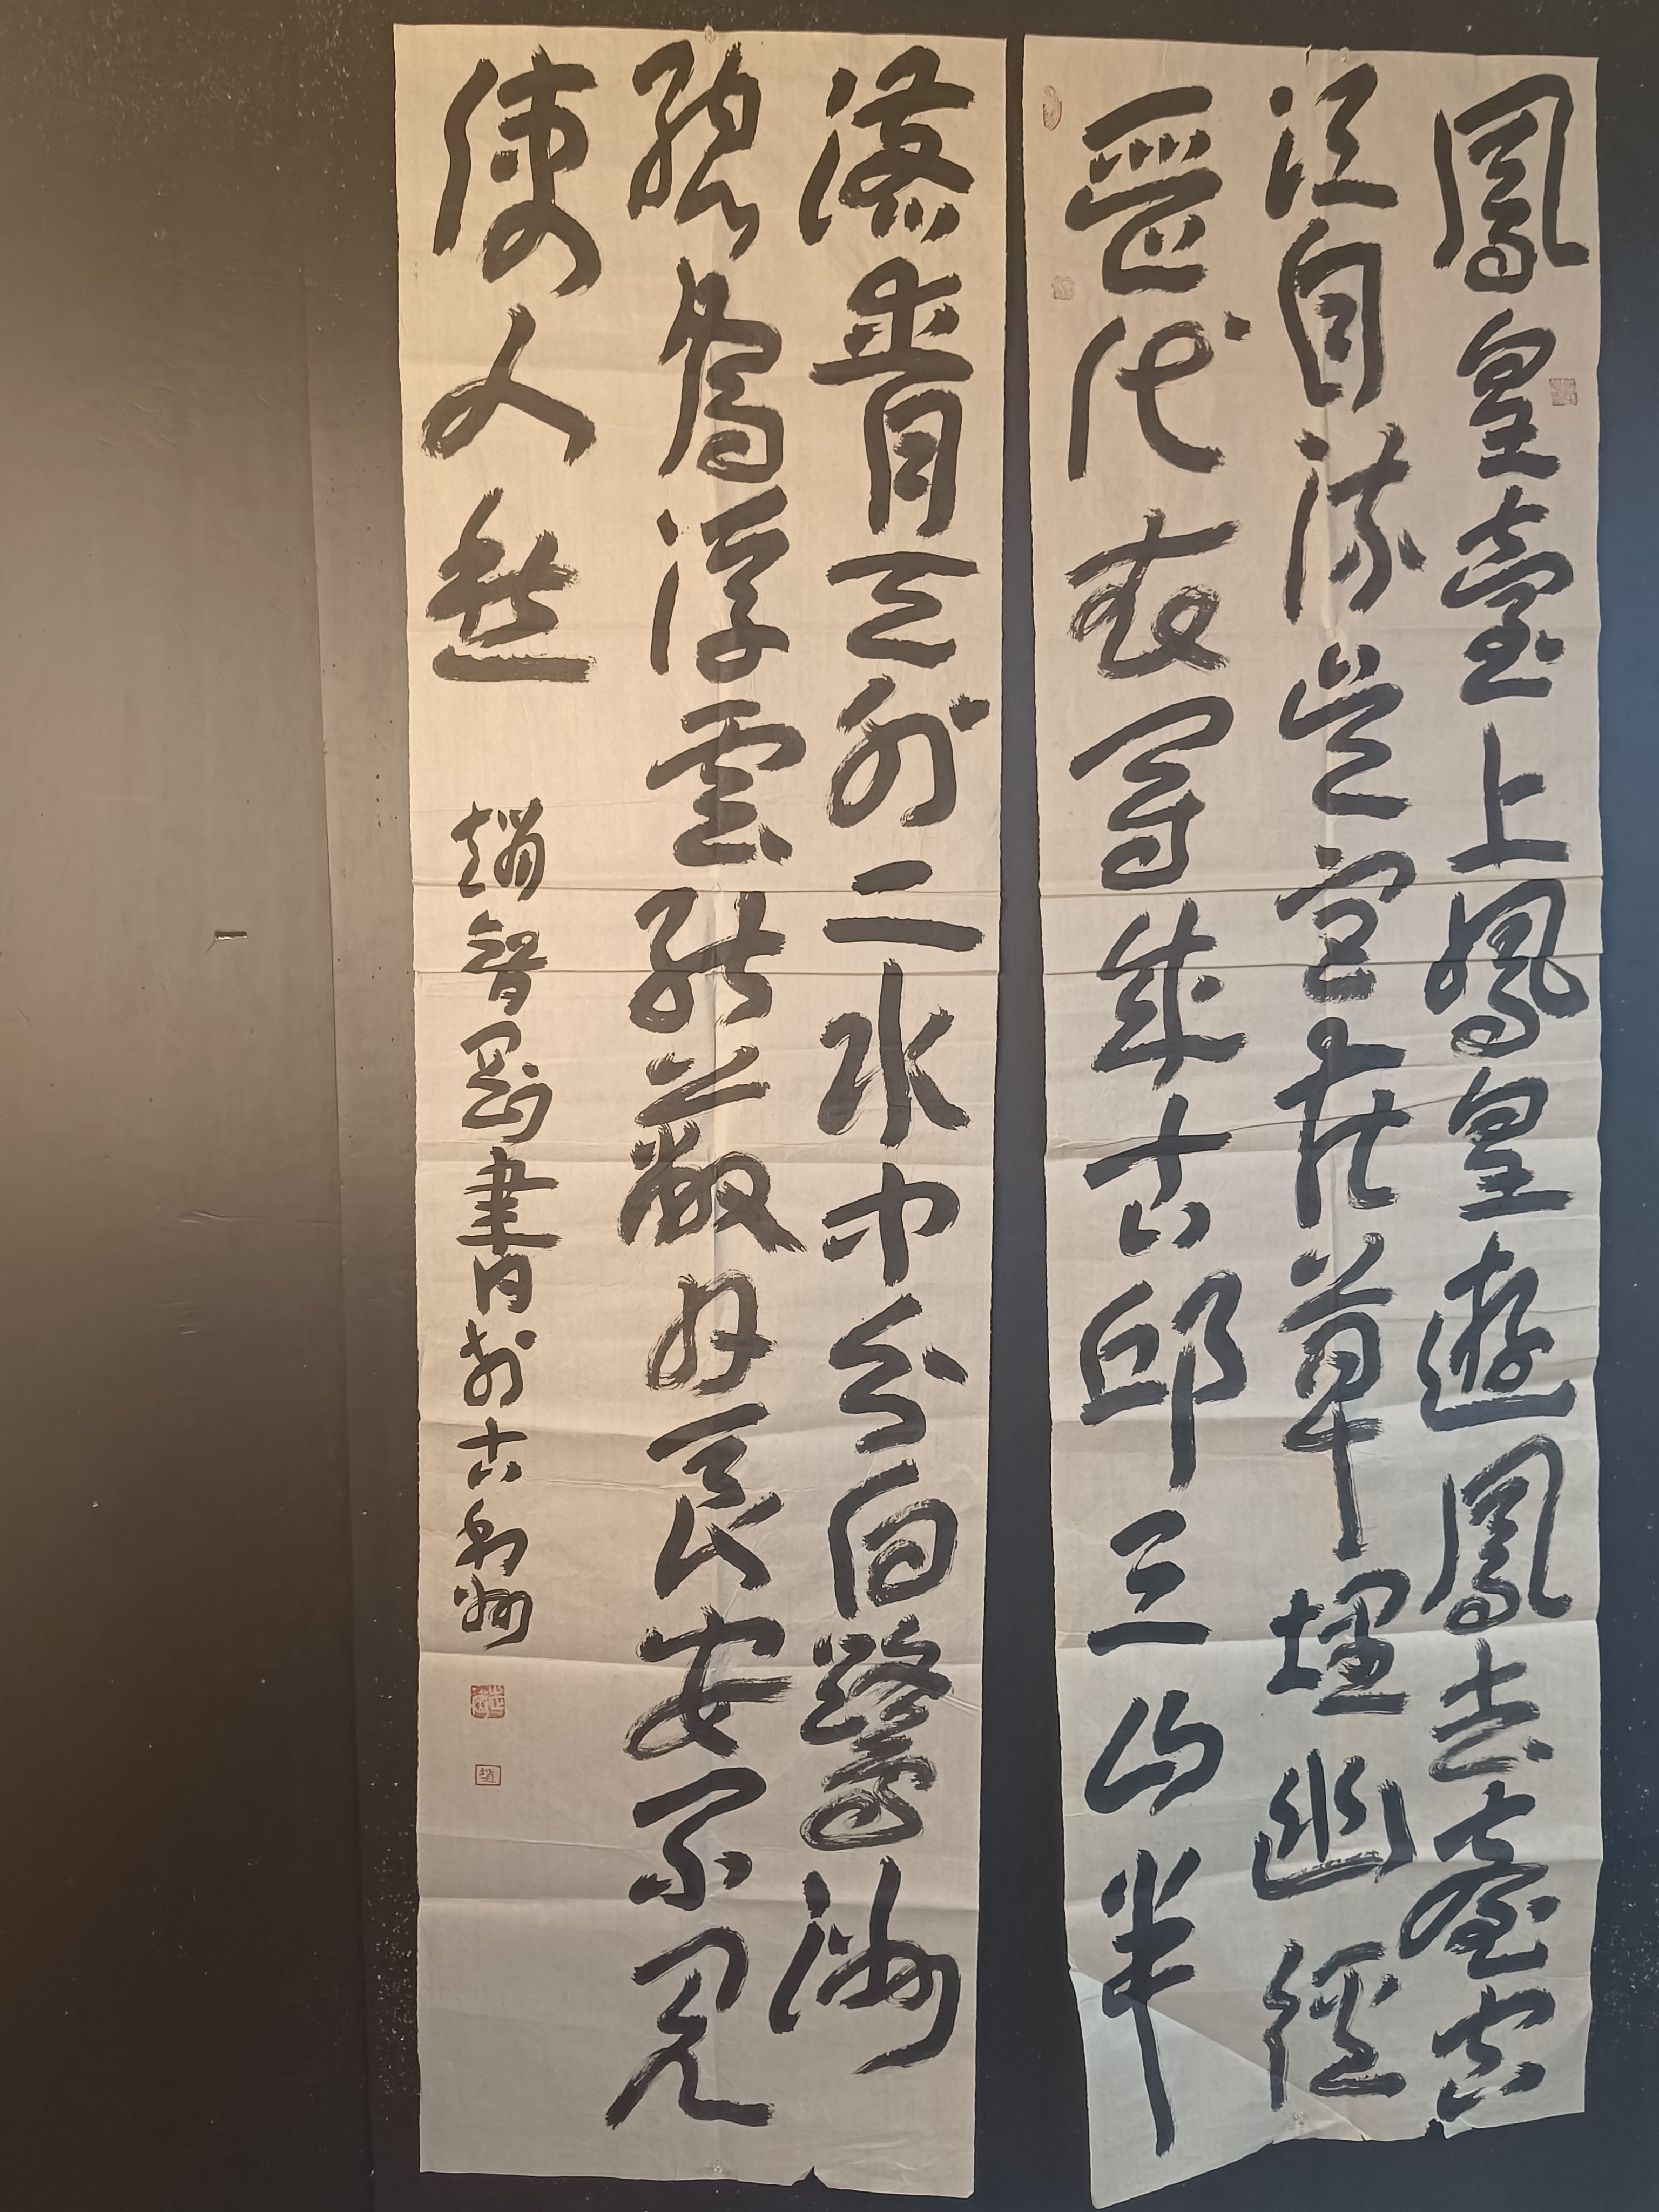 鳳皇臺上鳳皇遊鳳去臺空
江自流吳宮花草埋幽徑
晉代衣冠成古邱三山半
落青天外二水中分白鷺洲
總為浮雲能蔽日長安不見
使人愁
趙智剛書於古州